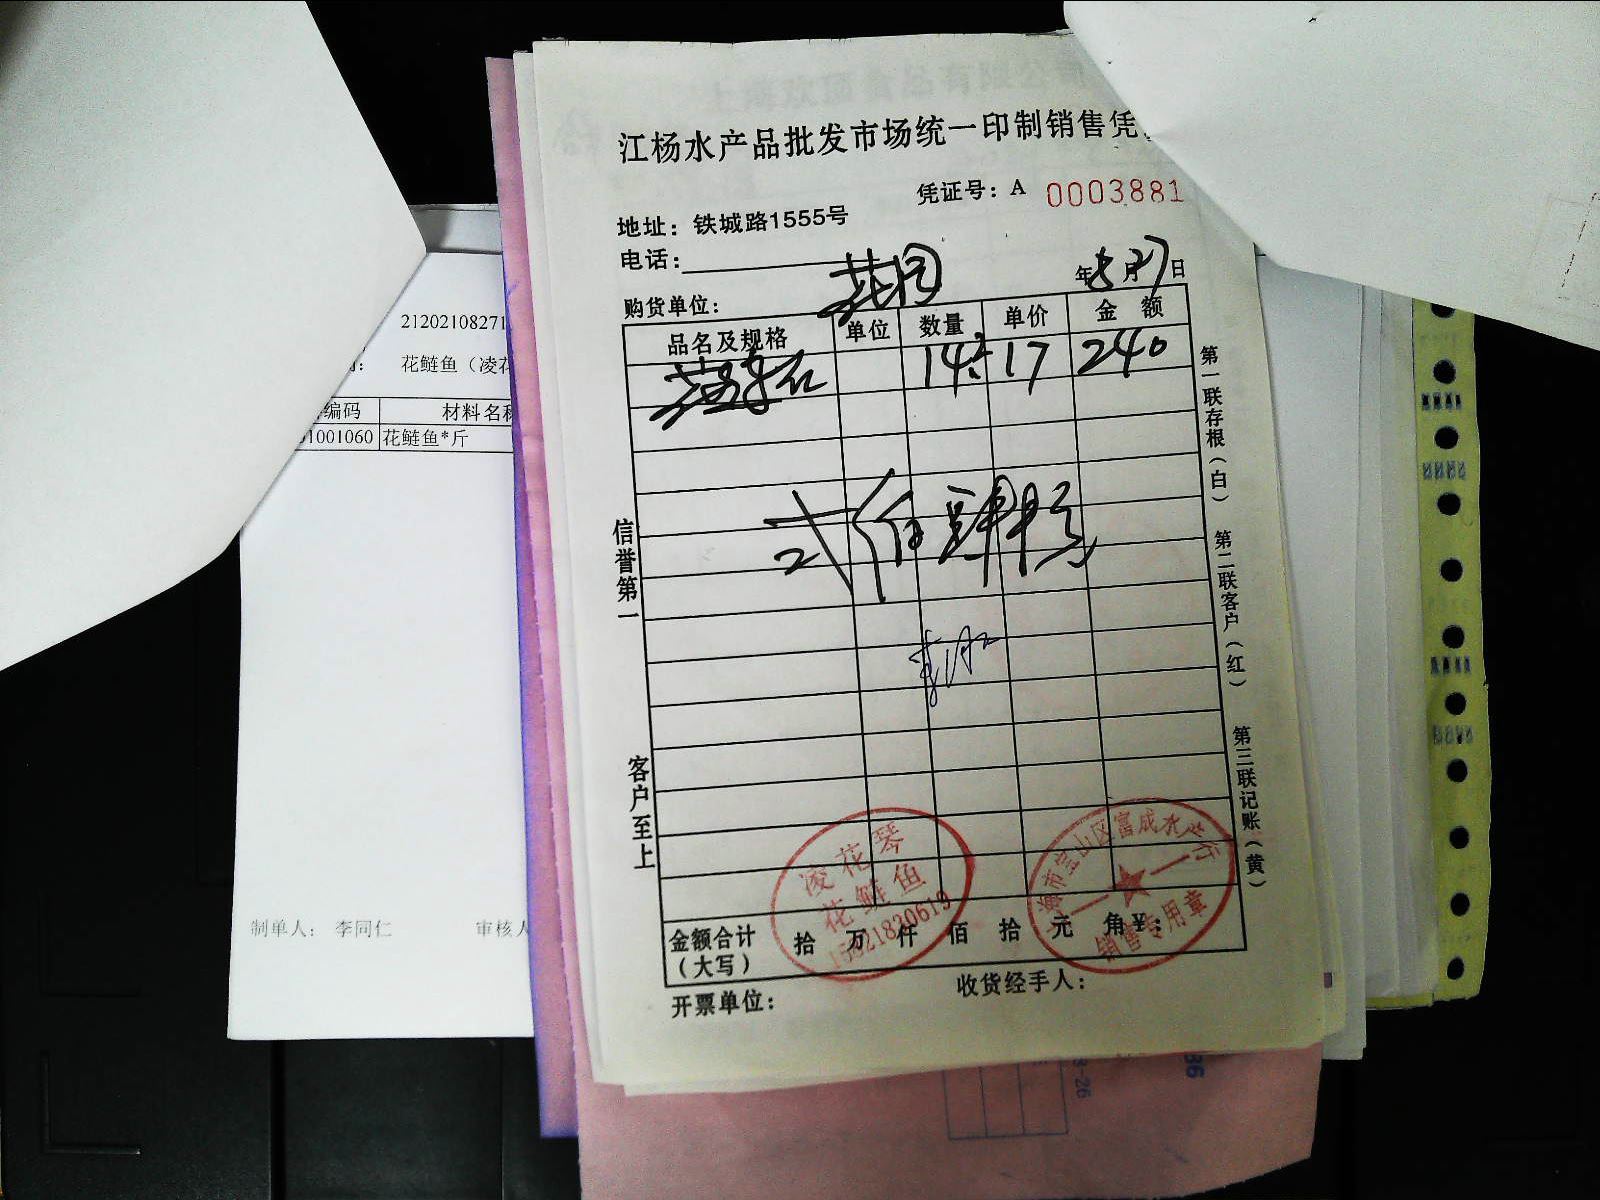 江杨水产品批发市场统一印制销售凭
凭证号：A 0003881
地址：铁城路1555号
电话：
年8月27日
购货单位：花园
品名及规格 单位 数量 单价 金额
17 240
贰佰肆拾元
第一联存根（白）
第二联客户（红）
第三联记账（黄）
信誉第一
客户至上
凌花琴
花鲢鱼
海市宝山区富成水产行
销售专用章
金额合计（大写） 拾 万 仟 佰 拾 元 角 ¥：
开票单位：
收货经手人：
21202108271
花鲢鱼（凌花
编码 材料名称
01001060 花鲢鱼*斤
制单人： 李同仁
审核人